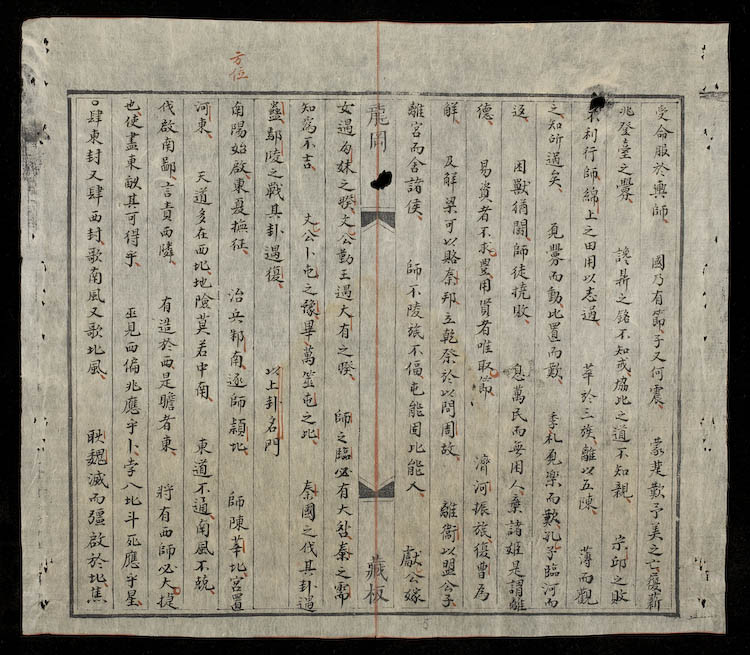 受命服於興師 國乃有節予又何震 蒙楚歎予美之亡屨薪
兆登臺之釁 讒鼎之銘不知或協此之道不知親 宗邱之敗
不利行師綿上之田用以志過 革於三族離以五陳 薄而觀
之知所過矣 克釁而動比置而歎 季札見樂而歎孔子臨河而
返 困獸猶鬪師徒撓敗 息萬民而無用人棄諸姬是謂離
德 易賁者不求豐用賁者唯取節 濟河振旅復曹為
解 及解梁可以賂秦邦立乾奈於以問周故 離衛以盟公子
離宮而舍諸侯 師不陵旅不偪屯能固比能入 獻公嫁
龍岡 藏板
女遇为妹之睽文公勤王遇大有之睽 師之臨必有大咎秦之需
知為不吉 文公卜屯之豫畢萬筮屯之比 秦國之伐其卦遇
蠱鄢陵之戰其卦遇復 以上卦名門
方位
南陽始啟東夏撫征 治兵鄀南逐師潁北 師陳莘北宮置
河東 天道多在西北地險莫若中南 東道不通南風不競
伐啟南鄙言責西隣 有造於西是瞻者東 將有西師必大捷
也使盡東畝其可得乎 巫見西偏兆應乎卜孛入北斗死應乎星
既肆東封又肆西封歌南風又歌北風 耿魏滅而疆啟於北焦